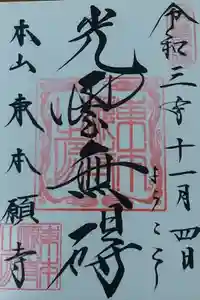 令和三年十一月四日
ようこそ
光雲無碍
本山東本願寺